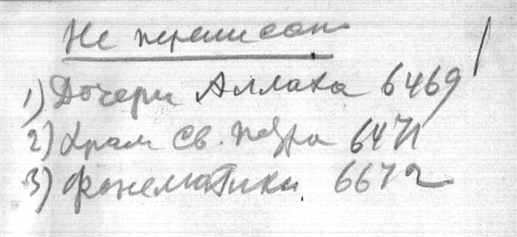 Не переписан
1) Дочери Аллаха 6469
2) Храм Св. Петра 6471
3) Фонематики 6672